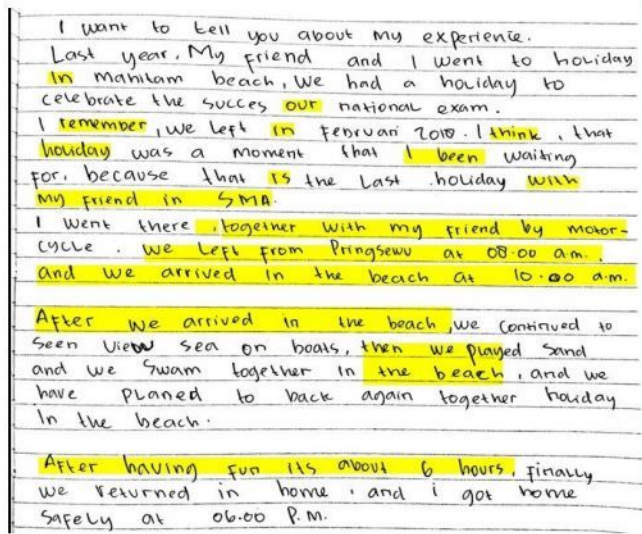 I want to tell you about my experience.
Last year, My friend and I went to holiday
In mahitam beach, We had a holiday to
celebrate the succes our national exam.
I remember, we left in Februari 2010. I think, that
holiday was a moment that I been waiting
for, because that is the Last holiday with
my friend in SMA.
I went there, together with my friend by motor-
cycle. We Left from Pringsewu at 08.00 a.m.
and we arrived in the beach at 10.00 a.m.
After we arrived in the beach, we continued to
seen view sea on boats, then we played sand
and we swam together in the beach, and we
have planed to back again together holiday
In the beach.
After having fun its about 6 hours, finally
we returned in home, and i got home
safely at 06.00 P.M.